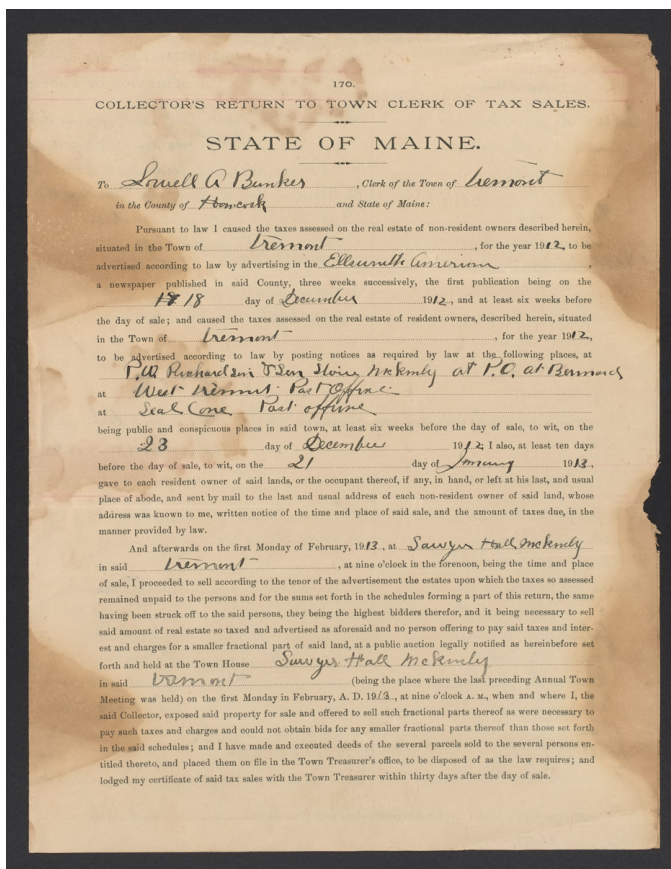 170.
COLLECTOR'S RETURN TO TOWN CLERK OF TAX SALES.
STATE OF MAINE.
To Lowell A Bunker, Clerk of the Town of Tremont
in the County of Hancock and State of Maine:
Pursuant to law I caused the taxes assessed on the real estate of non-resident owners described herein,
situated in the Town of Tremont, for the year 1912, to be
advertised according to law by advertising in the Ellsworth American,
a newspaper published in said County, three weeks successively, the first publication being on the
18 day of December 1912, and at least six weeks before
the day of sale; and caused the taxes assessed on the real estate of resident owners, described herein, situated
in the Town of Tremont, for the year 1912,
to be advertised according to law by posting notices as required by law at the following places, at
P.W. Richardson & Son Store McKinly at P.O. at Bernard
at West Tremont Post Office
at Seal Cove Post office
being public and conspicuous places in said town, at least six weeks before the day of sale, to wit, on the
23 day of December 1912; I also, at least ten days
before the day of sale, to wit, on the 21 day of January 1913,
gave to each resident owner of said lands, or the occupant thereof, if any, in hand, or left at his last, and usual
place of abode, and sent by mail to the last and usual address of each non-resident owner of said land, whose
address was known to me, written notice of the time and place of said sale, and the amount of taxes due, in the
manner provided by law.
And afterwards on the first Monday of February, 1913, at Sawyer Hall McKinly
in said Tremont, at nine o'clock in the forenoon, being the time and place
of sale, I proceeded to sell according to the tenor of the advertisement the estates upon which the taxes so assessed
remained unpaid to the persons and for the sums set forth in the schedules forming a part of this return, the same
having been struck off to the said persons, they being the highest bidders therefor, and it being necessary to sell
said amount of real estate so taxed and advertised as aforesaid and no person offering to pay said taxes and inter-
est and charges for a smaller fractional part of said land, at a public auction legally notified as hereinbefore set
forth and held at the Town House Sawyer Hall McKinly
in said Tremont (being the place where the last preceding Annual Town
Meeting was held) on the first Monday in February, A. D. 1913, at nine o'clock A. M., when and where I, the
said Collector, exposed said property for sale and offered to sell such fractional parts thereof as were necessary to
pay such taxes and charges and could not obtain bids for any smaller fractional parts thereof than those set forth
in the said schedules; and I have made and executed deeds of the several parcels sold to the several persons en-
titled thereto, and placed them on file in the Town Treasurer's office, to be disposed of as the law requires; and
lodged my certificate of said tax sales with the Town Treasurer within thirty days after the day of sale.